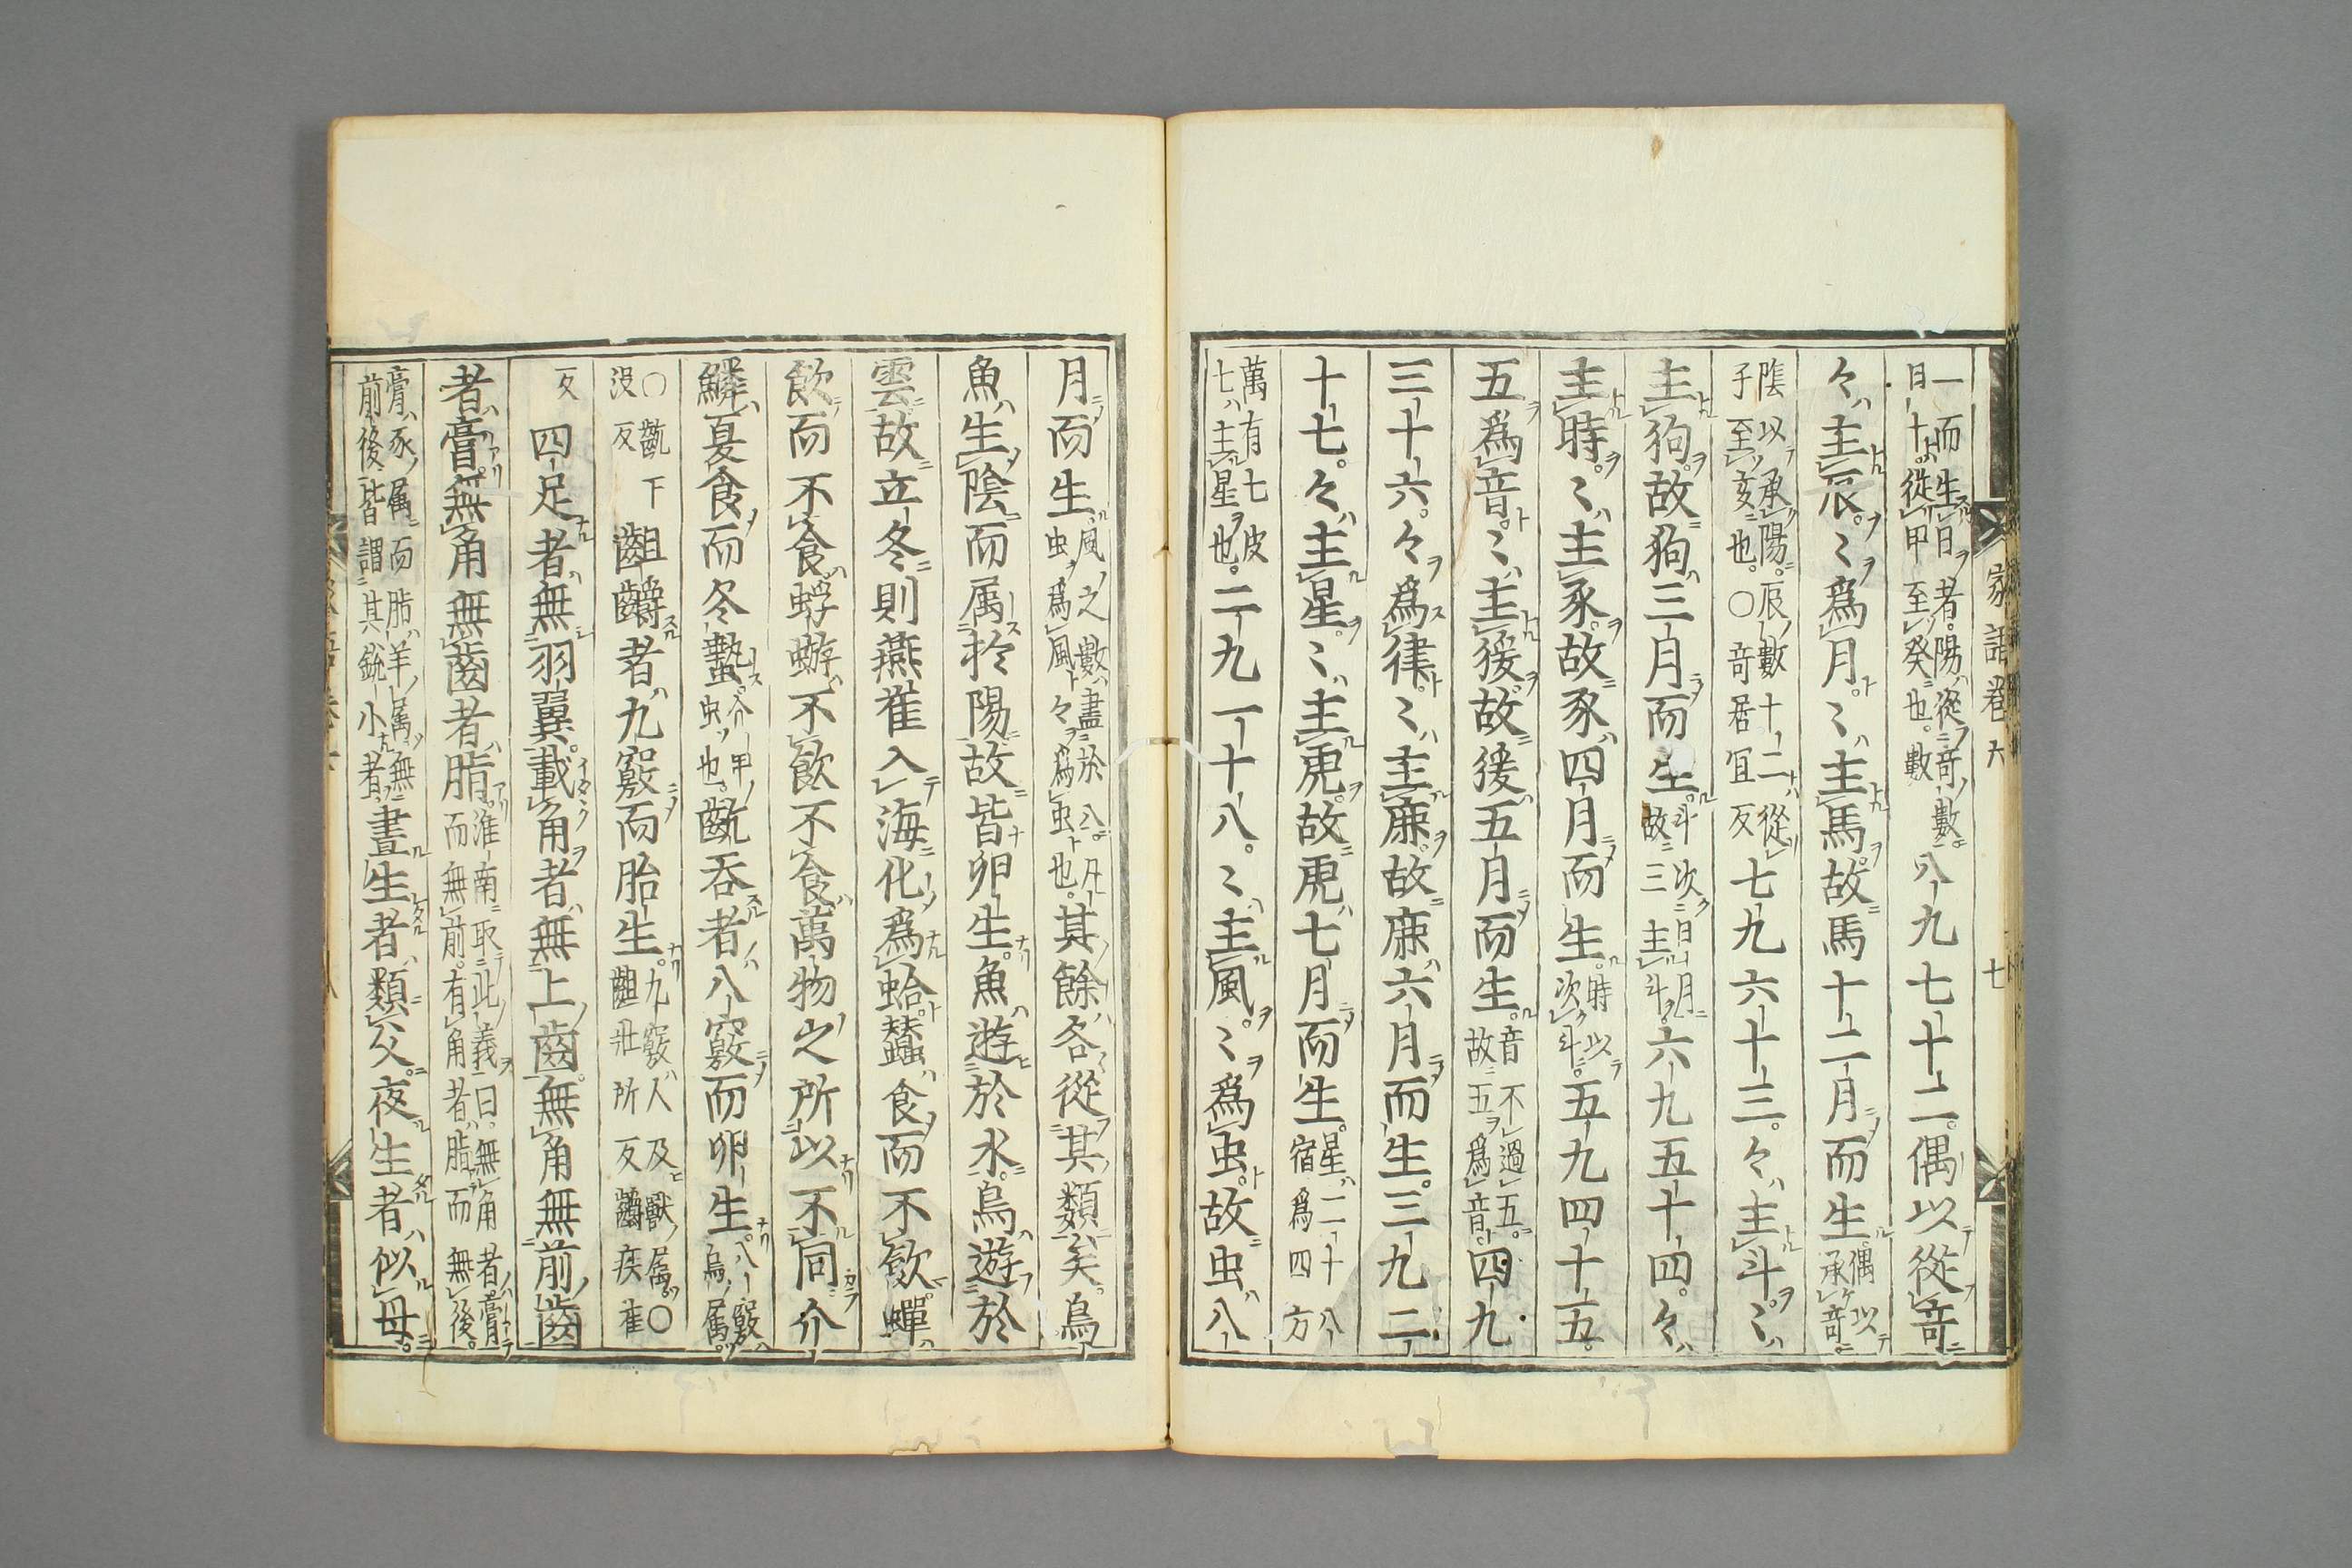 一而生日者陽從奇數日十從甲至癸也數八九七十二偶以從奇
々主辰〻爲月〻主馬故馬十二月而生偶以承奇
陰以承陽辰數十二從子至亥也○奇居宜反七九六十三々主斗〻
主狗故狗三月而生斗次日月故三主斗六九五十四々
主時〻主豕故豕四月而生時以次斗五九四十五
五爲音〻主猨故猨五月而生音不過五故五爲音四九
三十六々爲律〻主麋故麋六月而生三九二
十七々主星〻主虎故虎七月而生星二十八宿爲四方
萬有七皮七主星也二九一十八〻主風〻爲虫故虫八
家語卷六 七
月而生風之數盡於八凡虫爲風々爲虫也其餘各從其類矣鳥
魚生陰而属於陽故皆卵生魚遊於水鳥遊於
雲故立冬則燕雀入海化爲蛤蠶食而不飲蟬
飲而不食蜉蝣不飲不食萬物之所以不同介
鱗夏食而冬蟄介甲虫也齕吞者八竅而卵生八竅鳥属
○齕下没反齟嚼者九竅而胎生九竅人及獸属○齟壯所反嚼疾雀
反四足者無羽翼載角者無上齒無角無前齒
者膏無角無齒者脂淮南取此義曰無角者膏而無前有角者脂而無後
膏豕属而脂羊属無前後皆謂其銳小者晝生者類父夜生者似母